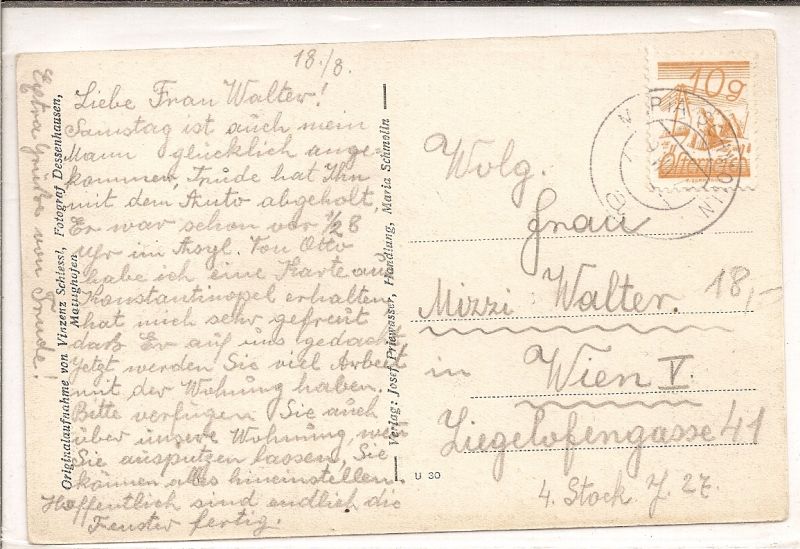 18./8.
Liebe Frau Walter!
Samstag ist auch mein
Mann glücklich ange-
kommen, Trude hat Ihn
mit dem Auto abgeholt.
Er war schon vor 1/2 8
Uhr im Asyl. Von Otto
habe ich eine Karte aus
Konstantinopel erhalten
hat mich sehr gefreut
daß Er auf uns gedacht
Jetzt werden Sie viel Arbeit
mit der Wohnung haben.
Bitte verfügen Sie auch
über unsere Wohnung, wen
Sie ausputzen lassen, Sie
können alles hineinstellen.
Hoffentlich sind endlich die
Fenster fertig.
Extra Grüße von Trude!
Originalaufnahme von Vinzenz Schiessl, Fotograf Dessenhausen,
Mattighofen
Verlag: Josef Priewasser, Handlung, Maria Schmolln
U 30
10g
Österreich
MARIA
Wolg.
Frau
Mizzi Walter.
18,-
in Wien V.
Ziegelofengasse 41
4. Stock J. 27.